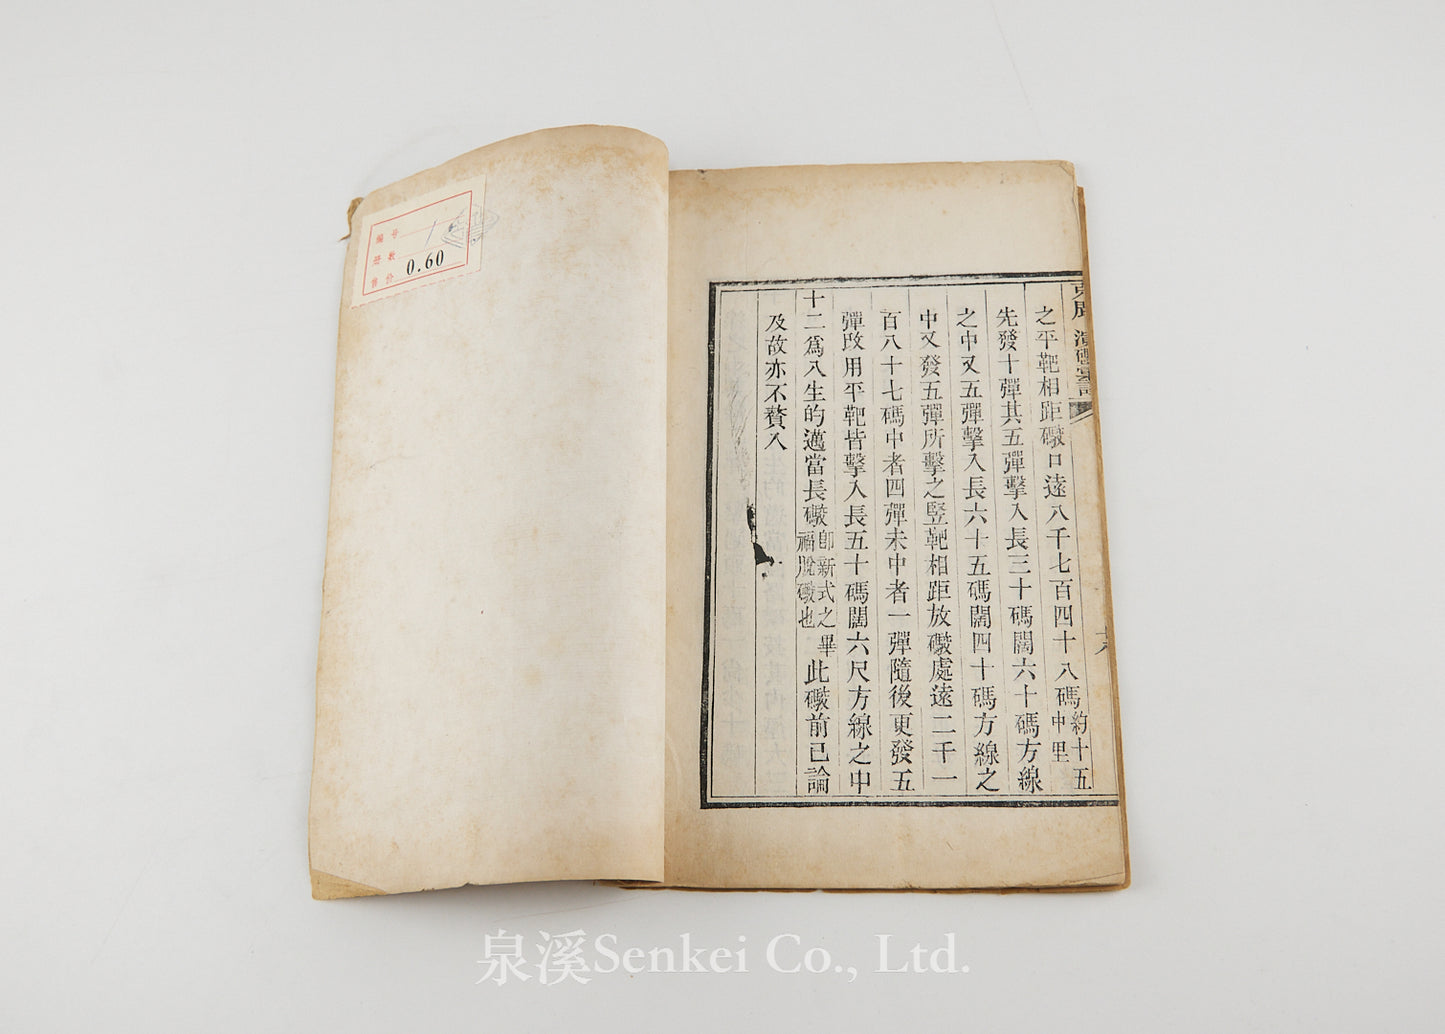 編号
册数 1
售价 0.60
演礮彙記
之平靶相距礮口遠八千七百四十八碼約十五中里
先發十彈其五彈擊入長三十碼闊六十碼方線
之中又五彈擊入長六十五碼闊四十碼方線之
中又發五彈所擊之竪靶相距放礮處遠二千一
百八十七碼中者四彈未中者一彈隨後更發五
彈改用平靶皆擊入長五十碼闊六尺方線之中
十二爲入生的邁當長礮卽新式之福脫礮也畢此礮前已論
及故亦不贅入
泉溪Senkei Co., Ltd.